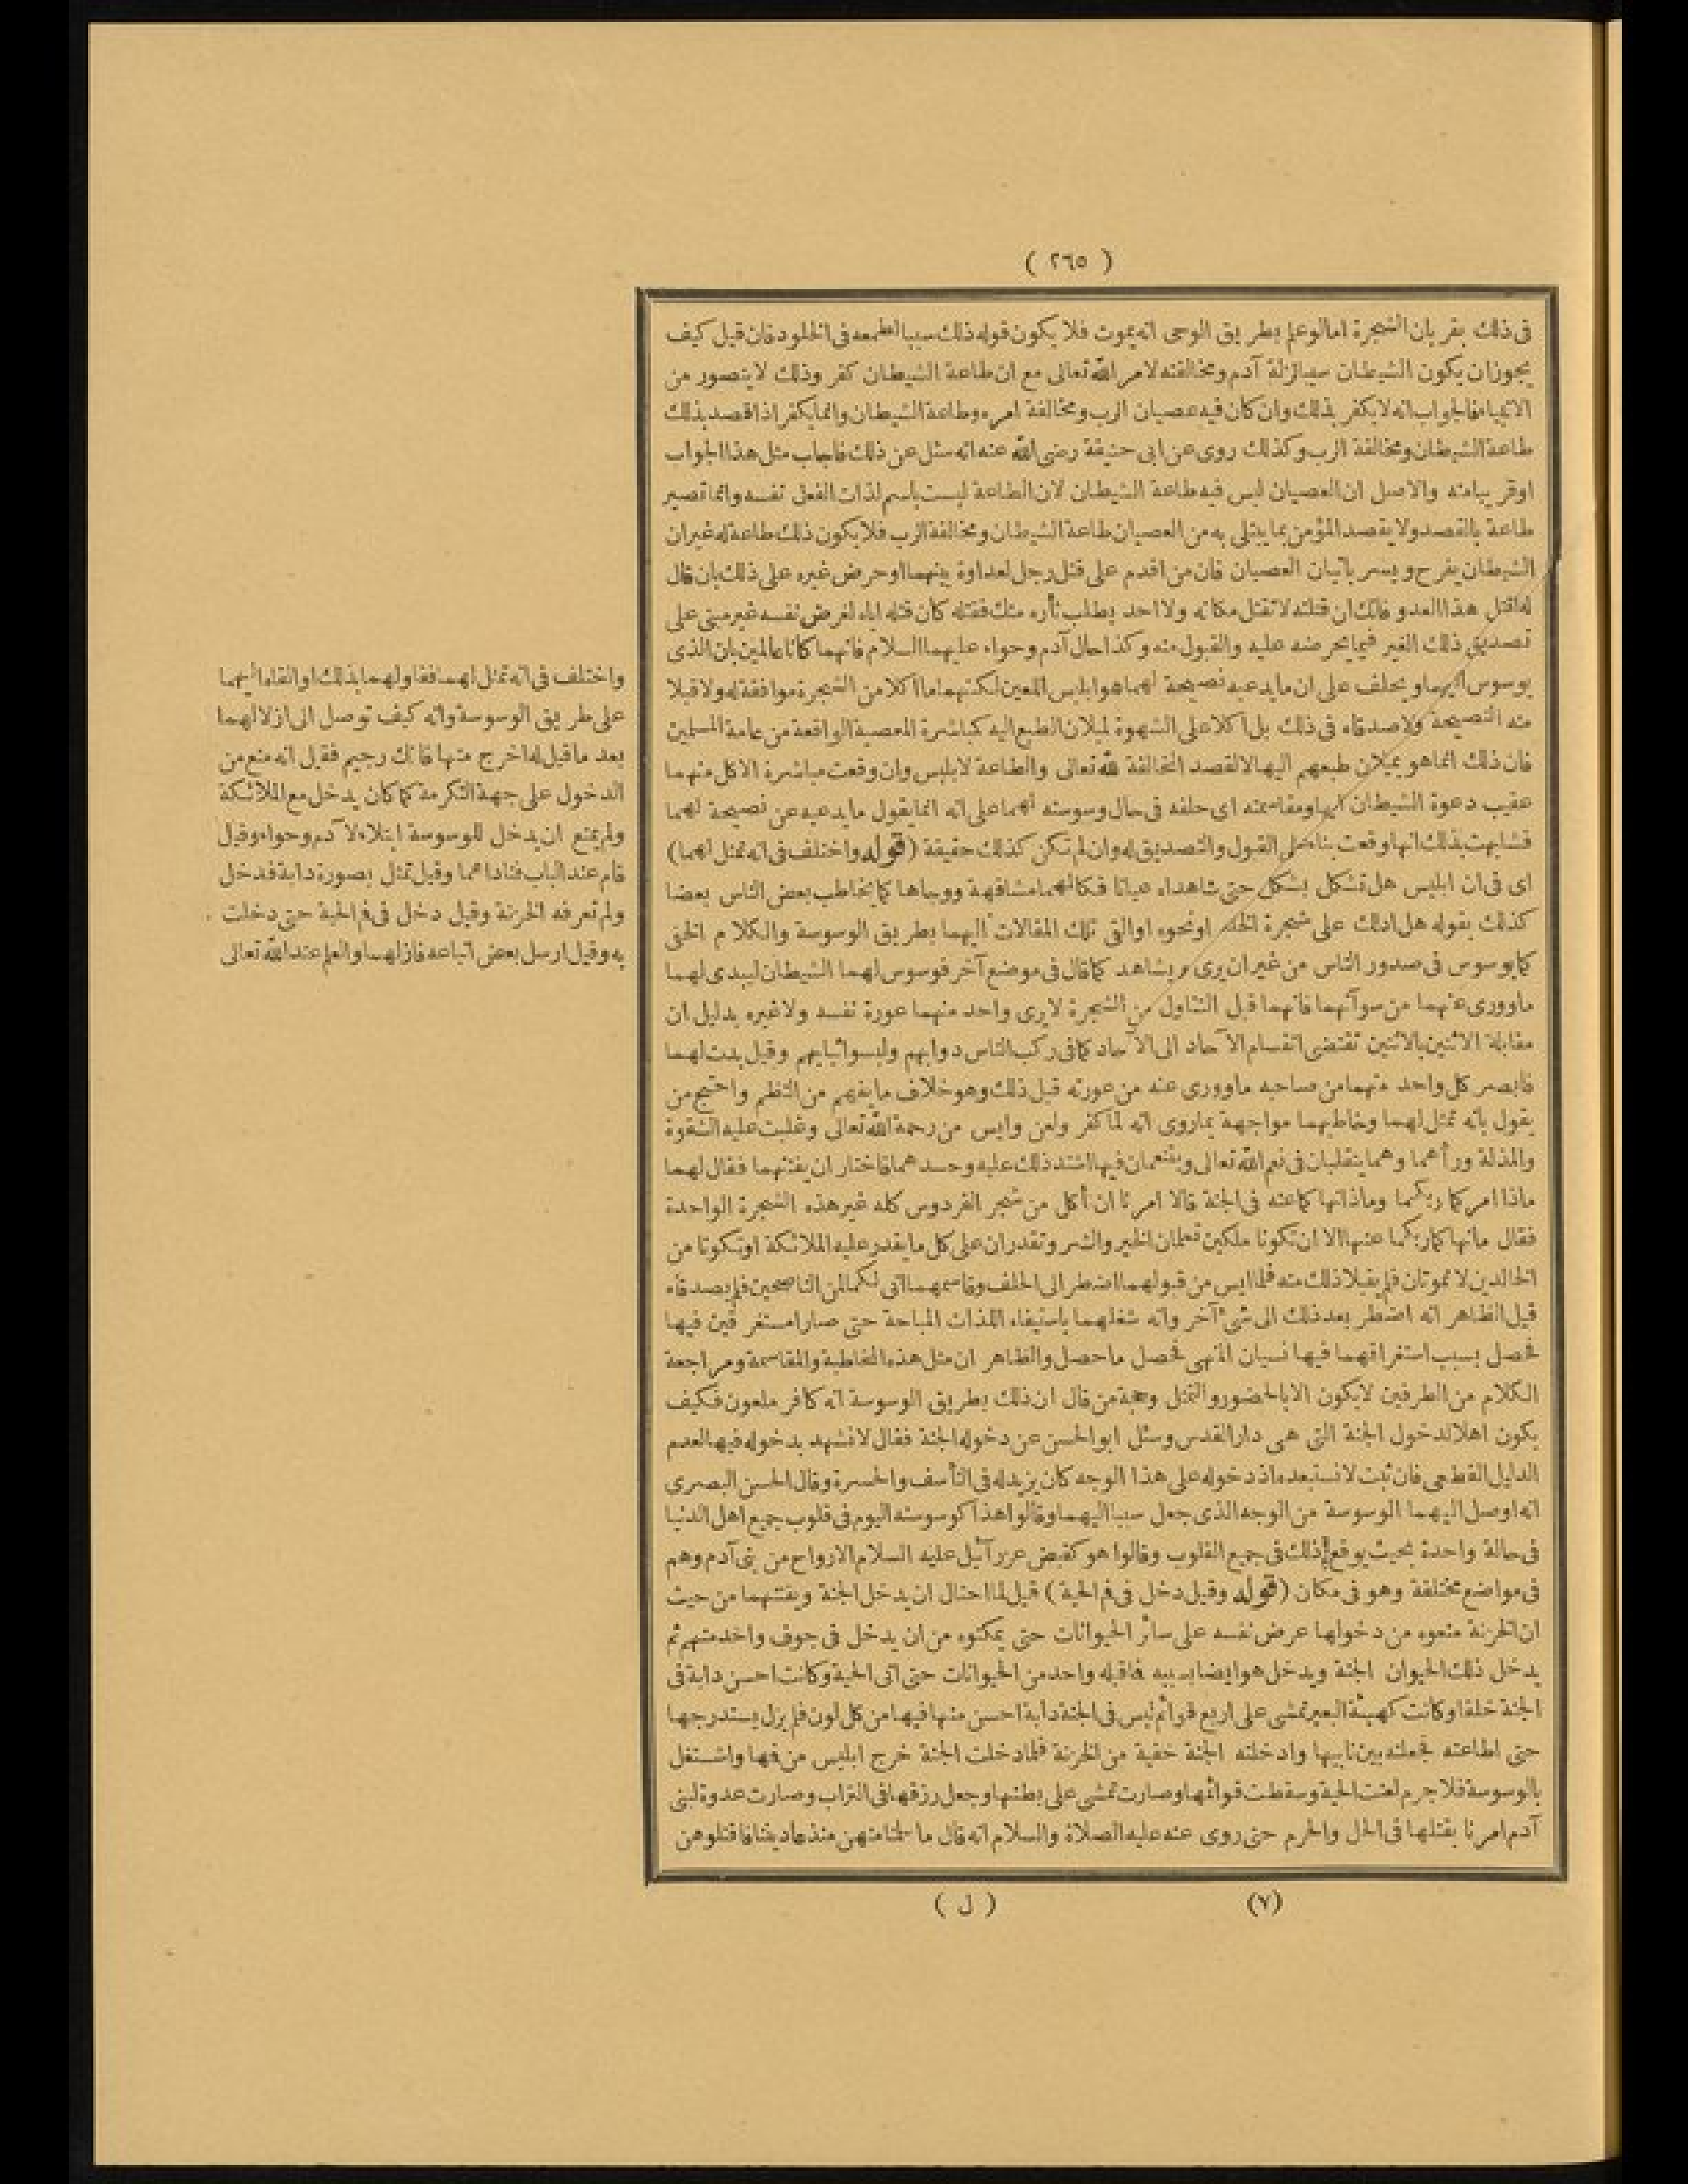 ( ٢٦٥ )
فى ذلك بقربان الشجرة اما لو علم بطريق الوحى انه يموت فلا يكون قوله ذلك سببا لطمعه فى الخلود فان قيل كيف
يجوز ان يكون الشيطان سببا لزلة آدم ومخالفته لامر الله تعالى مع ان طاعة الشيطان كفر وذلك لا يتصور من
الانبياء فالجواب انه لا يكفر بذلك وان كان فيه عصيان الرب ومخالفة امره وطاعة الشيطان وانما يكفر اذا قصد بذلك
طاعة الشيطان ومخالفة الرب وكذلك روى عن ابى حنيفة رضى الله عنه انه سئل عن ذلك فاجاب مثل هذا الجواب
او قريبا منه والاصل ان العصيان ليس فيه طاعة الشيطان لان الطاعة ليست باسم لذات الفعل نفسه وانما تصير
طاعة بالقصد ولا يقصد المؤمن بما يبتلى به من العصيان طاعة الشيطان ومخالفة الرب فلا يكون ذلك طاعة له غير ان
الشيطان يفرح ويسر باتيان العصيان فان من اقدم على قتل رجل لعداوة بينهما او حرض غيره على ذلك بان قال
له اقتل هذا العدو فانك ان قتلته لا تقتل مكانه ولا احد يطلب ثأره منك فقتله كان قتله اياه لغرض نفسه غير مبنى على
تصديق ذلك الغير فيما يحرضه عليه والقبول منه وكذا حال آدم وحواء عليهما السلام فانهما كانا عالمين بان الذى
يوسوس اليهما ويحلف على ان ما يدعيه نصيحة لهما هو ابليس اللعين لكنهما ما اكلا من الشجرة موافقة له ولا قبلا
منه النصيحة ولا صدقاه فى ذلك بل اكلا على الشهوة لميلان الطبع اليه كمباشرة المعصية الواقعة من عامة المسلمين
فان ذلك انما هو بميلان طبعهم اليها لا لقصد المخالفة لله تعالى والطاعة لابليس وان وقعت مباشرة الاكل منهما
عقيب دعوة الشيطان اليها ومقاسمته اى حلفه فى حال وسوسته لهما على انه انما يقول ما يدعيه عن نصيحة لهما
فشابهت بذلك انها وقعت بناء على القبول والتصديق له وان لم تكن كذلك حقيقة (قوله واختلف فى انه تمثل لهما)
اى فى ان ابليس هل تشكل بشكل حتى شاهداه عيانا فكالمهما مشافهة ووساها كما يخاطب بعض الناس بعضا
كذلك بقوله هل ادلك على شجرة الخلد او نحوه او القى تلك المقالات اليهما بطريق الوسوسة والكلام الخفى
كما يوسوس فى صدور الناس من غير ان يرى ويشاهد كما قال فى موضع آخر فوسوس لهما الشيطان ليبدى لهما
ما وورى عنهما من سوآتهما فانهما قبل التناول من الشجرة لا يرى واحد منهما عورة نفسه ولا غيره بدليل ان
مقابلة الاثنين بالاثنين تقتضى انقسام الآحاد الى الآحاد كما فى ركب الناس دوابهم ولبسوا ثيابهم وقيل بدت لهما
فابصر كل واحد منهما من صاحبه ما وورى عنه من عورته قبل ذلك وهو خلاف ما يفهم من النظم واحتج من
يقول بانه تمثل لهما وخاطبهما مواجهة بما روى انه لما كفر ولعن وايس من رحمة الله تعالى وغلبت عليه الشقوة
والمذلة ورأهما وهما يتقلبان فى نعم الله تعالى ويتنعمان فيها اشتد ذلك عليه وحسدهما فاختار ان يفتنهما فقال لهما
ماذا امركما ربكما وماذا نهاكما عنه فى الجنة قالا امرنا ان نأكل من شجر الفردوس كله غير هذه الشجرة الواحدة
فقال ما نهاكما ربكما عنها الا ان تكونا ملكين تعلمان الخير والشر وتقدران على كل ما يقدر عليه الملائكة او تكونا من
الخالدين لا تموتان فلم يقبلا ذلك منه فلما ايس من قبولهما اضطر الى الحلف وقاسمهما انى لكما لمن الناصحين فلم يصدقاه
قيل الظاهر انه اضطر بعد ذلك الى شئ آخر وانه شغلهما باستيفاء اللذات المباحة حتى صارا مستغرقين فيها
فحصل بسبب استغراقهما فيها نسيان النهى فحصل ما حصل والظاهر ان مثل هذه المخاطبة والمقاسمة ومراجعة
الكلام من الطرفين لا يكون الا بالحضور والتمثل وحجة من قال ان ذلك بطريق الوسوسة انه كافر ملعون فكيف
يكون اهلا لدخول الجنة التى هى دار القدس وسئل ابو الحسن عن دخوله الجنة فقال لا نشهد بدخوله فيها لعدم
الدليل القطعى فان ثبت لا نستبعده اذ دخوله على هذا الوجه كان يزيد له فى التأسف والحسرة وقال الحسن البصرى
انه اوصل اليهما الوسوسة من الوجه الذى جعل سببا اليهما وقالوا هذا كوسوسته اليوم فى قلوب جميع اهل الدنيا
فى حالة واحدة بحيث يوقع ذلك فى جميع القلوب وقالوا هو كقبض عزرآئيل عليه السلام الارواح من بنى آدم وهم
فى مواضع مختلفة وهو فى مكان (قوله وقيل دخل فى فم الحية) قيل لما احتال ان يدخل الجنة ويفتنهما من حيث
ان الخزنة منعوه من دخولها عرض نفسه على سائر الحيوانات حتى يمكنوه من ان يدخل فى جوف واحد منهم ثم
يدخل ذلك الحيوان الجنة ويدخل هو ايضا بسببه فما قبله واحد من الحيوانات حتى اتى الحية وكانت احسن دابة فى
الجنة خلقا وكانت كهيئة البعير تمشى على اربع قوائم ليس فى الجنة دابة احسن منها فيها من كل لون فلم يزل يستدرجها
حتى اطاعته فجعلته بين نابيها وادخلته الجنة خفية من الخزنة فلما دخلت الجنة خرج ابليس من فمها واشتغل
بالوسوسة فلا جرم لعنت الحية وسقطت قوائمها وصارت تمشى على بطنها وجعل رزقها فى التراب وصارت عدوة لبنى
آدم امرنا بقتلها فى الحل والحرم حتى روى عنه عليه الصلاة والسلام انه قال ما سالمناهن منذ عاديناهن فاقتلوهن
واختلف فى انه تمثل لهما فقاولهما بذلك او القاه اليهما
على طريق الوسوسة وانه كيف توصل الى ازلالهما
بعد ما قيل له اخرج منها فانك رجيم فقيل انه منع من
الدخول على جهة التكرمة كما كان يدخل مع الملائكة
ولم يمنع ان يدخل للوسوسة ابتلاء لآدم وحواء وقيل
قام عند الباب فناداهما وقيل تمثل بصورة دابة فدخل
ولم تعرفه الخزنة وقيل دخل فى فم الحية حتى دخلت
به وقيل ارسل بعض اتباعه فازلهما والعلم عند الله تعالى
(٧)
( ل )